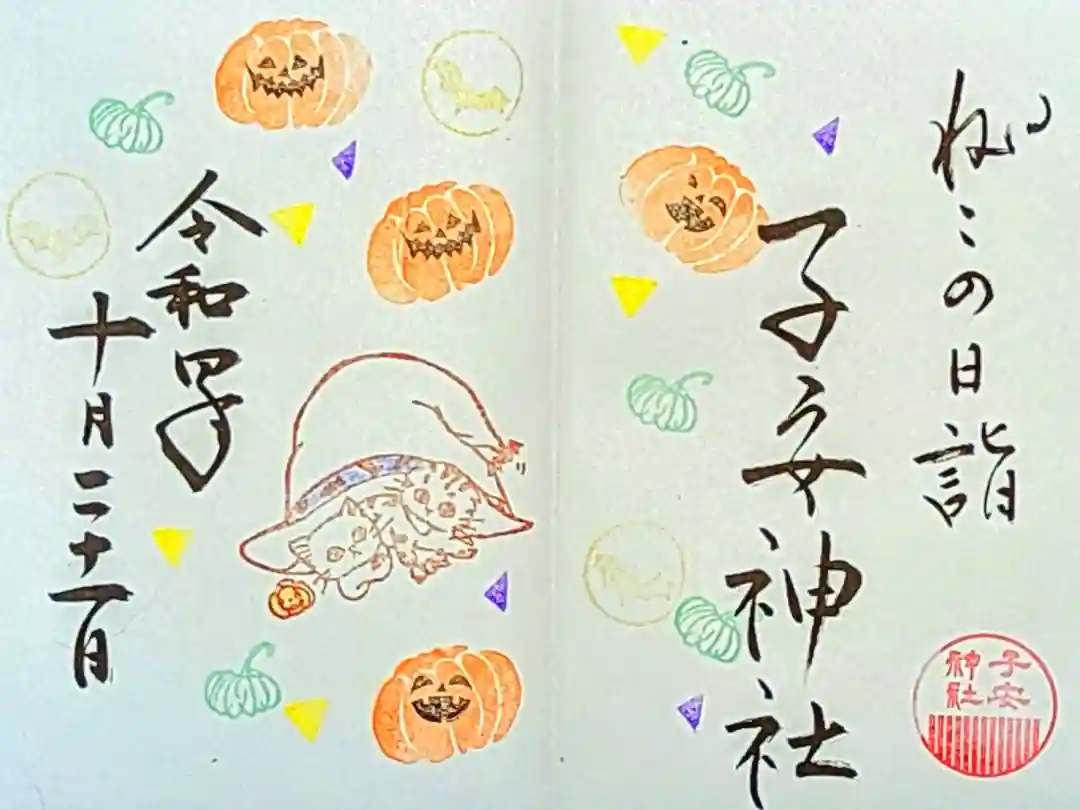 ねこの日詣
子安神社
子安
神社
令和四年
十月二十一日